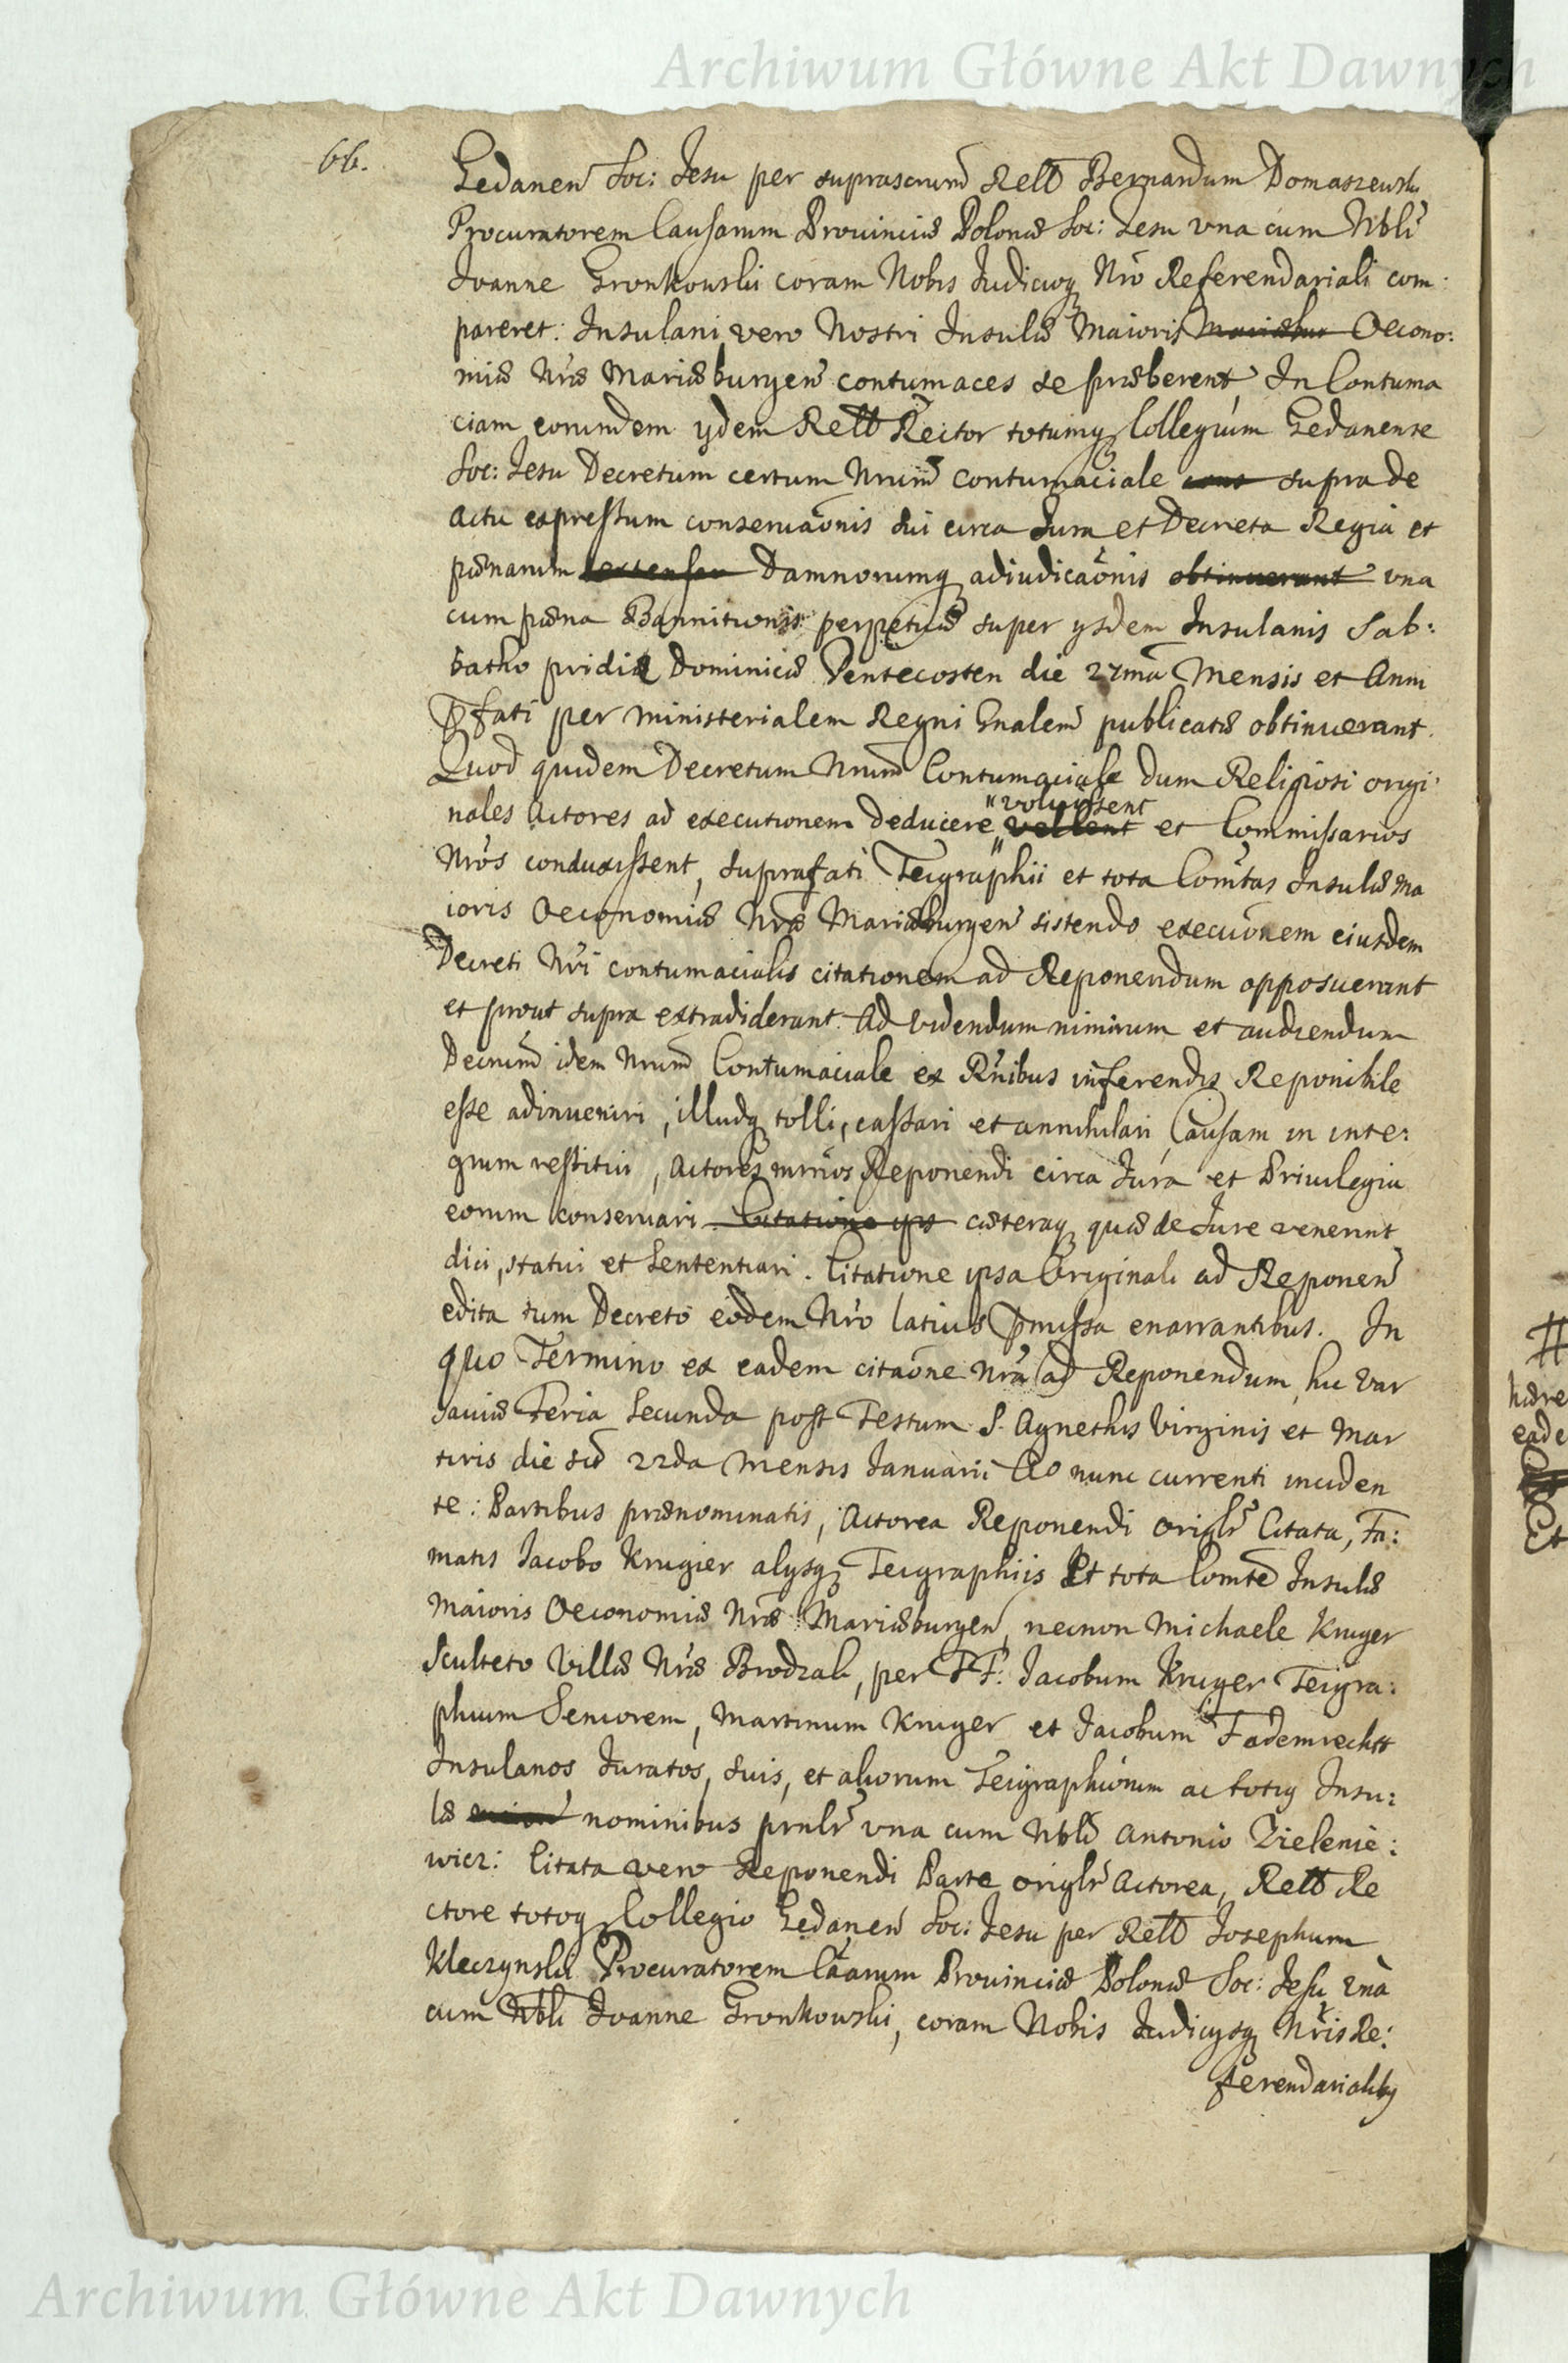 Archiwum Główne Akt Dawnych
66.
Gedanen̄ Soc: Jesu per suprascrum̄ Rel͠ Bernardum Domaszewski
Procuratorem Causarum Prouinciæ Polonæ Soc: Jesu vna cum Nbli
Joanne Gronkowski coram Nobis Judicioq̨ Nr̄o Referendariali com:
pareret: Insulani vero Nostri Insulæ Maioris Oecono:
miæ Nr̄æ Mariæburgen̄ contumaces se præberent, In Contuma
ciam eorundem ydem Rel͠ Rector totumq̨ Collegium Gedanense
Soc: Jesu Decretum certum Nrum̄ contumaciale supra de
actu expressum conseruaōnis sui circa Jura et Decreta Regia et
pænarum Damnorumq̨ adiudicaōnis obtinuerant vna
cum pæna Bannitionis perpetuæ super ysdem Insulanis Sab:
batho pridie Dominicæ Pentecosten die 27ma Mensis et Anni
P̄fati per ministerialem Regni Gn̄alem publicatæ obtinuerant.
Quod quidem Decretum Nrum̄ Contumaciale dum Religiosi origi:
nales Actores ad executionem deducere "voluissent
" vellent et Commissarios
Nr̄os conduxissent, suprafati Teigraphii et tota Com̄tas Insulæ Ma
ioris Oeconomiæ Nr̄æ Mariæburgen̄ sistendo execuōnem eiusdem
Decreti Nr̄i contumacialis citationem ad Reponendum opposuerant
et prout supra extradiderant. Ad videndum nimirum et audiendum
Decrum̄ idem Nrum̄ Contumaciale ex Rn̄ibus inferendis Reponibile
esse adinueniri, illudq̨ tolli, cassari et annihilari, Causam in inte:
grum restitui, Actores mrn̄os Reponendi circa Jura et Priuilegia
eorum conseruari cæteraq̨ quæ de Jure venerint
dici, statui et Sententiari. Citatione ipsa Originali ad Reponen̄
edita tum Decreto eōdem Nr̄o latius P̄missa enarrantibus. In
quo Termino ex eadem citaōne Nr̄a ad Reponendum hic Var
sauiæ Feria Secunda post Festum S. Agnethis Virginis et Mar
tiris die scī 22da Mensis Januarii Ao nunc currenti inciden
te: Partibus prænominatis, Actorea Reponendi origlr̄ Citata, Fa:
matis Jacobo Krugier alysq̨ Teigraphiis Et tota Com̄te Insulæ
Maioris Oeconomiæ Nr̄æ Mariæburgen̄, necnon Michaele Kruger
Sculteto Villæ Nr̄æ Brodzak, per FF: Jacobum Kruger Teigra:
phium Seniorem, Martinum Kruger et Jacobum Fademrecht
Insulanos Juratos, suis, et aliorum Teigraphiorum ac totiq̨ Insu:
læ nominibus prn̄lr̄ vna cum Nbli Antonio Zielenie:
wicz: Citata vero Reponendi Parte origlr̄ Actorea, Rel͠ Re
ctore totoq̨ Collegio Gedanen̄ Soc: Jesu per Rel͠ Josephum
Kleczynski Procuratorem Caarum Prouinciæ Polonæ Soc: Jesu vnà
cum Nbli Joanne Gronkowski, coram Nobis Judicysq̨ Nr̄is Re:
ferendarialibq̨
hære
eade
Et
Archiwum Główne Akt Dawnych